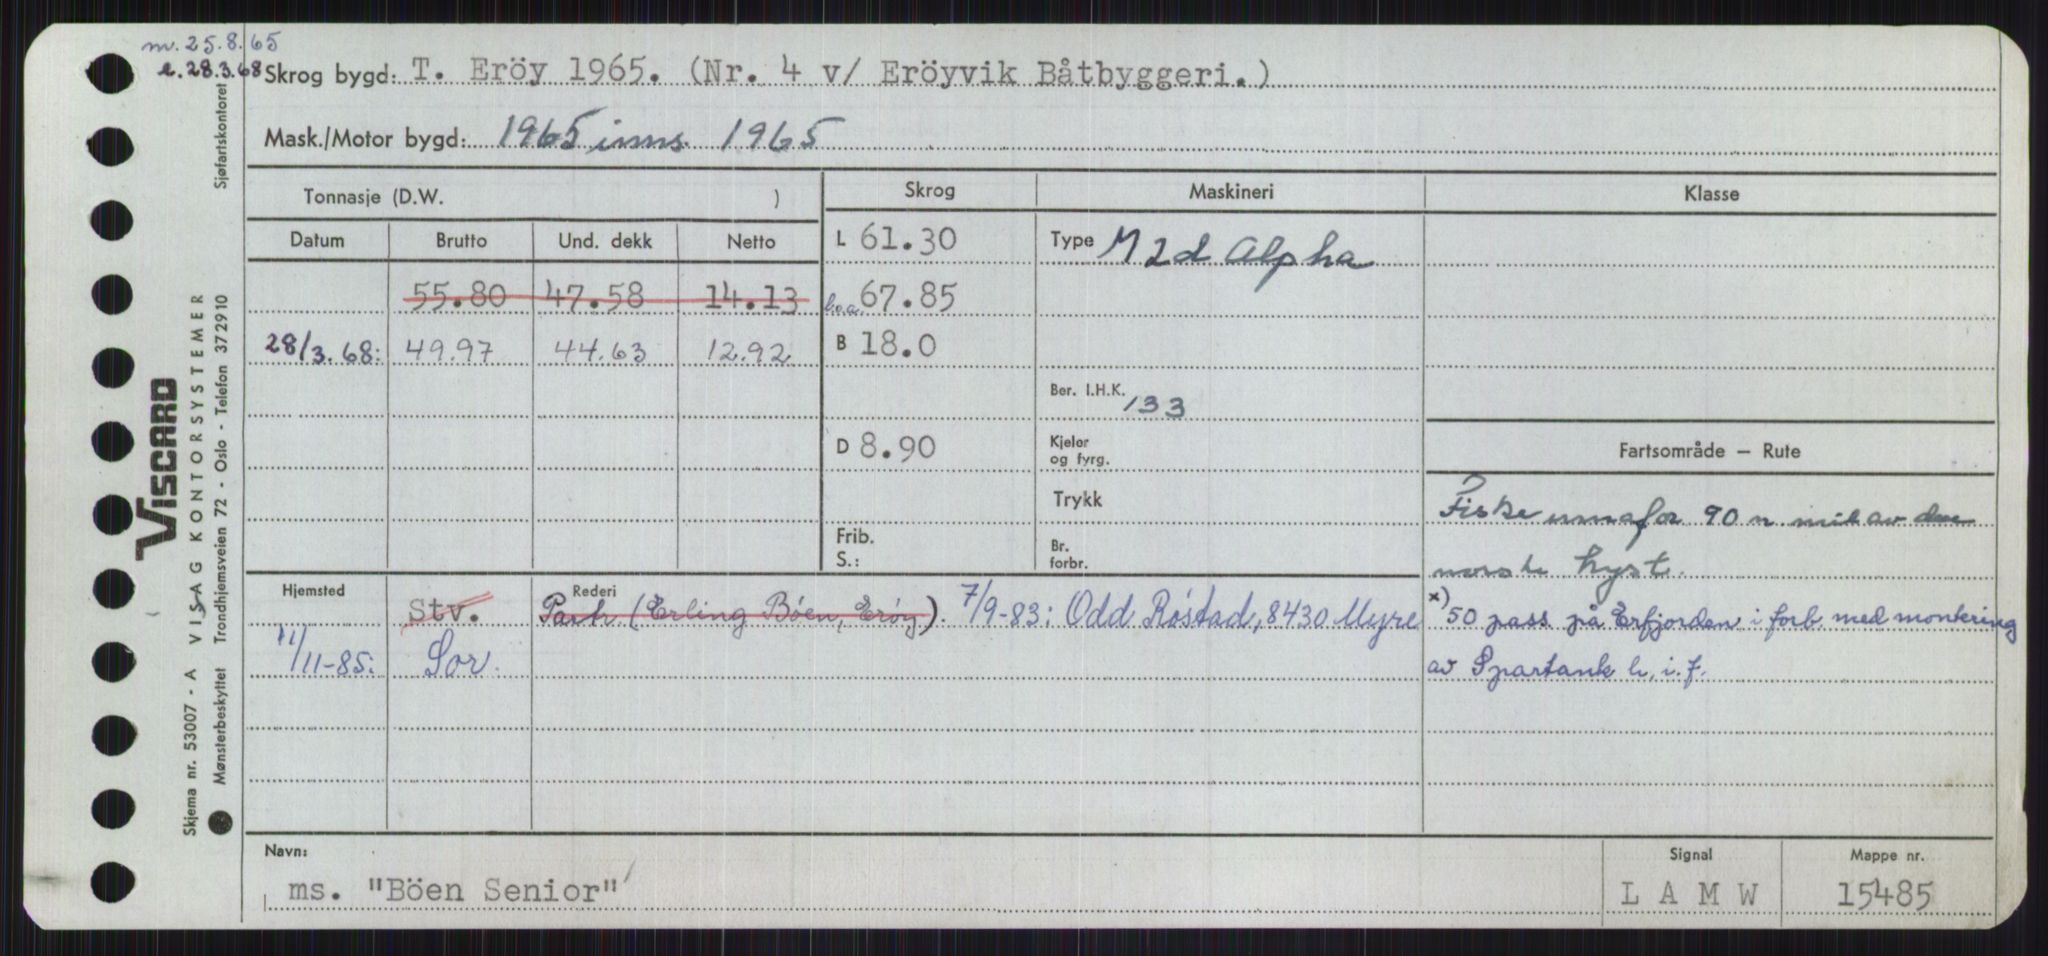 m. 25.8.65
e. 28.3.68
Skrog bygd: T. Eröy 1965. (Nr. 4 v/ Eröyvik Båtbyggeri.)
Mask./Motor bygd: 1965 inns. 1965
Tonnasje (D.W. )
Skrog
Maskineri
Klasse
Datum Brutto Und. dekk Netto
L 61.30
Type M 2d Alpha
55.80 47.58 14.13
l.o.a. 67.85
28/3.68: 49.97 44.63 12.92
B 18.0
Ber. I.H.K. 133
D 8.90
Kjeler
og fyrg.
Fartsområde — Rute
Trykk
Fiske innafor 90 n mil av den
Frib.
S.:
Br.
forbr.
norske kyst.
Hjemsted
Stv.
Rederi
Partr (Erling Böen, Eröy). 7/9-83: Odd Röstad, 8430 Myre
x) 50 pass på Erfjorden i forb med montering
11/11-85: Sor.
av Spartank h, i.f.
Navn:
ms. "Böen Senior"
Signal
L A M W
Mappe nr.
15485
VISCARD
VISAG KONTORSYSTEMER
Skjema nr. 53007 - A
Mønsterbeskyttet Trondhjemsveien 72 - Oslo - Telefon 372910
Sjøfartskontoret